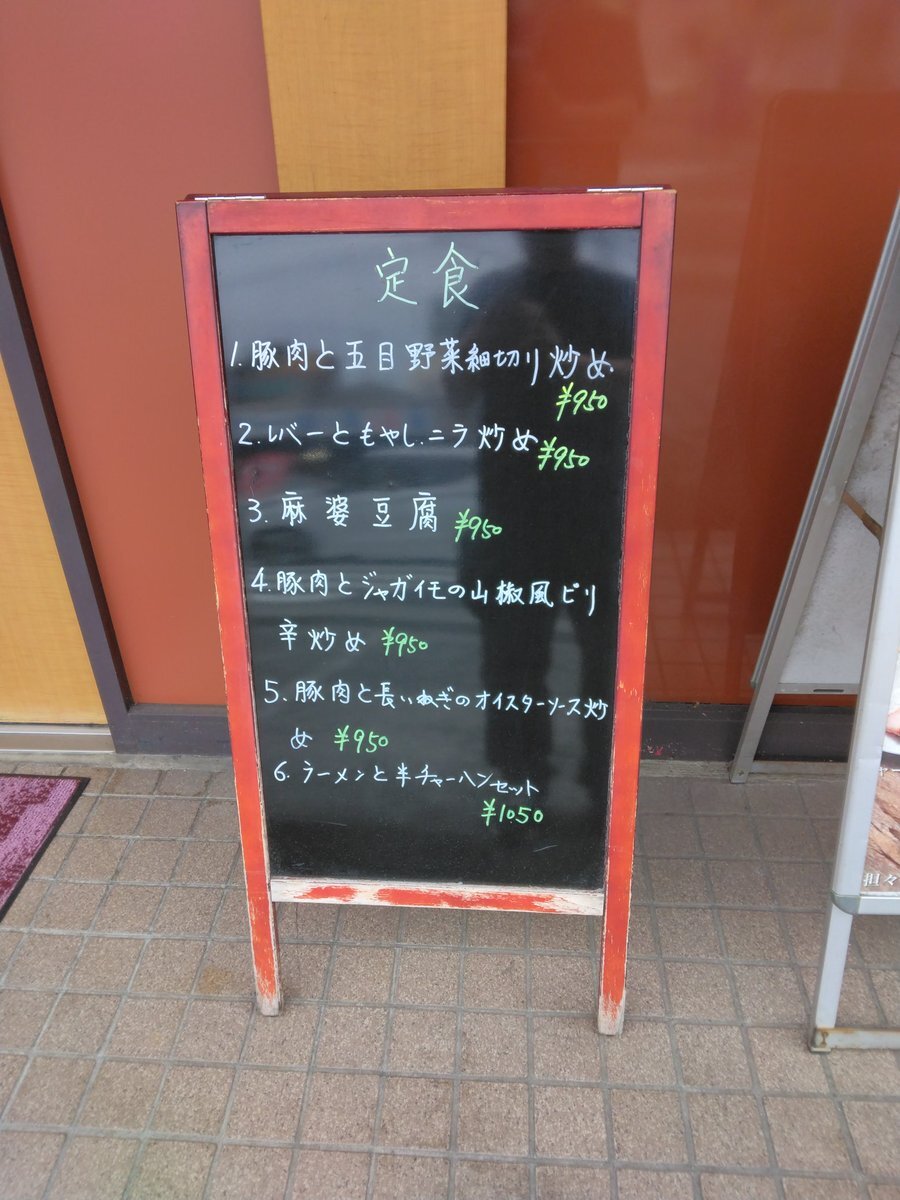 定食
1.豚肉と五目野菜細切り炒め
¥950
2.レバーともやし.ニラ炒め ¥950
3.麻婆豆腐 ¥950
4.豚肉とジャガイモの山椒風ピリ
辛炒め ¥950
5.豚肉と長いねぎのオイスターソース炒
め ¥950
6.ラーメンと半チャーハンセット
¥1050
担々